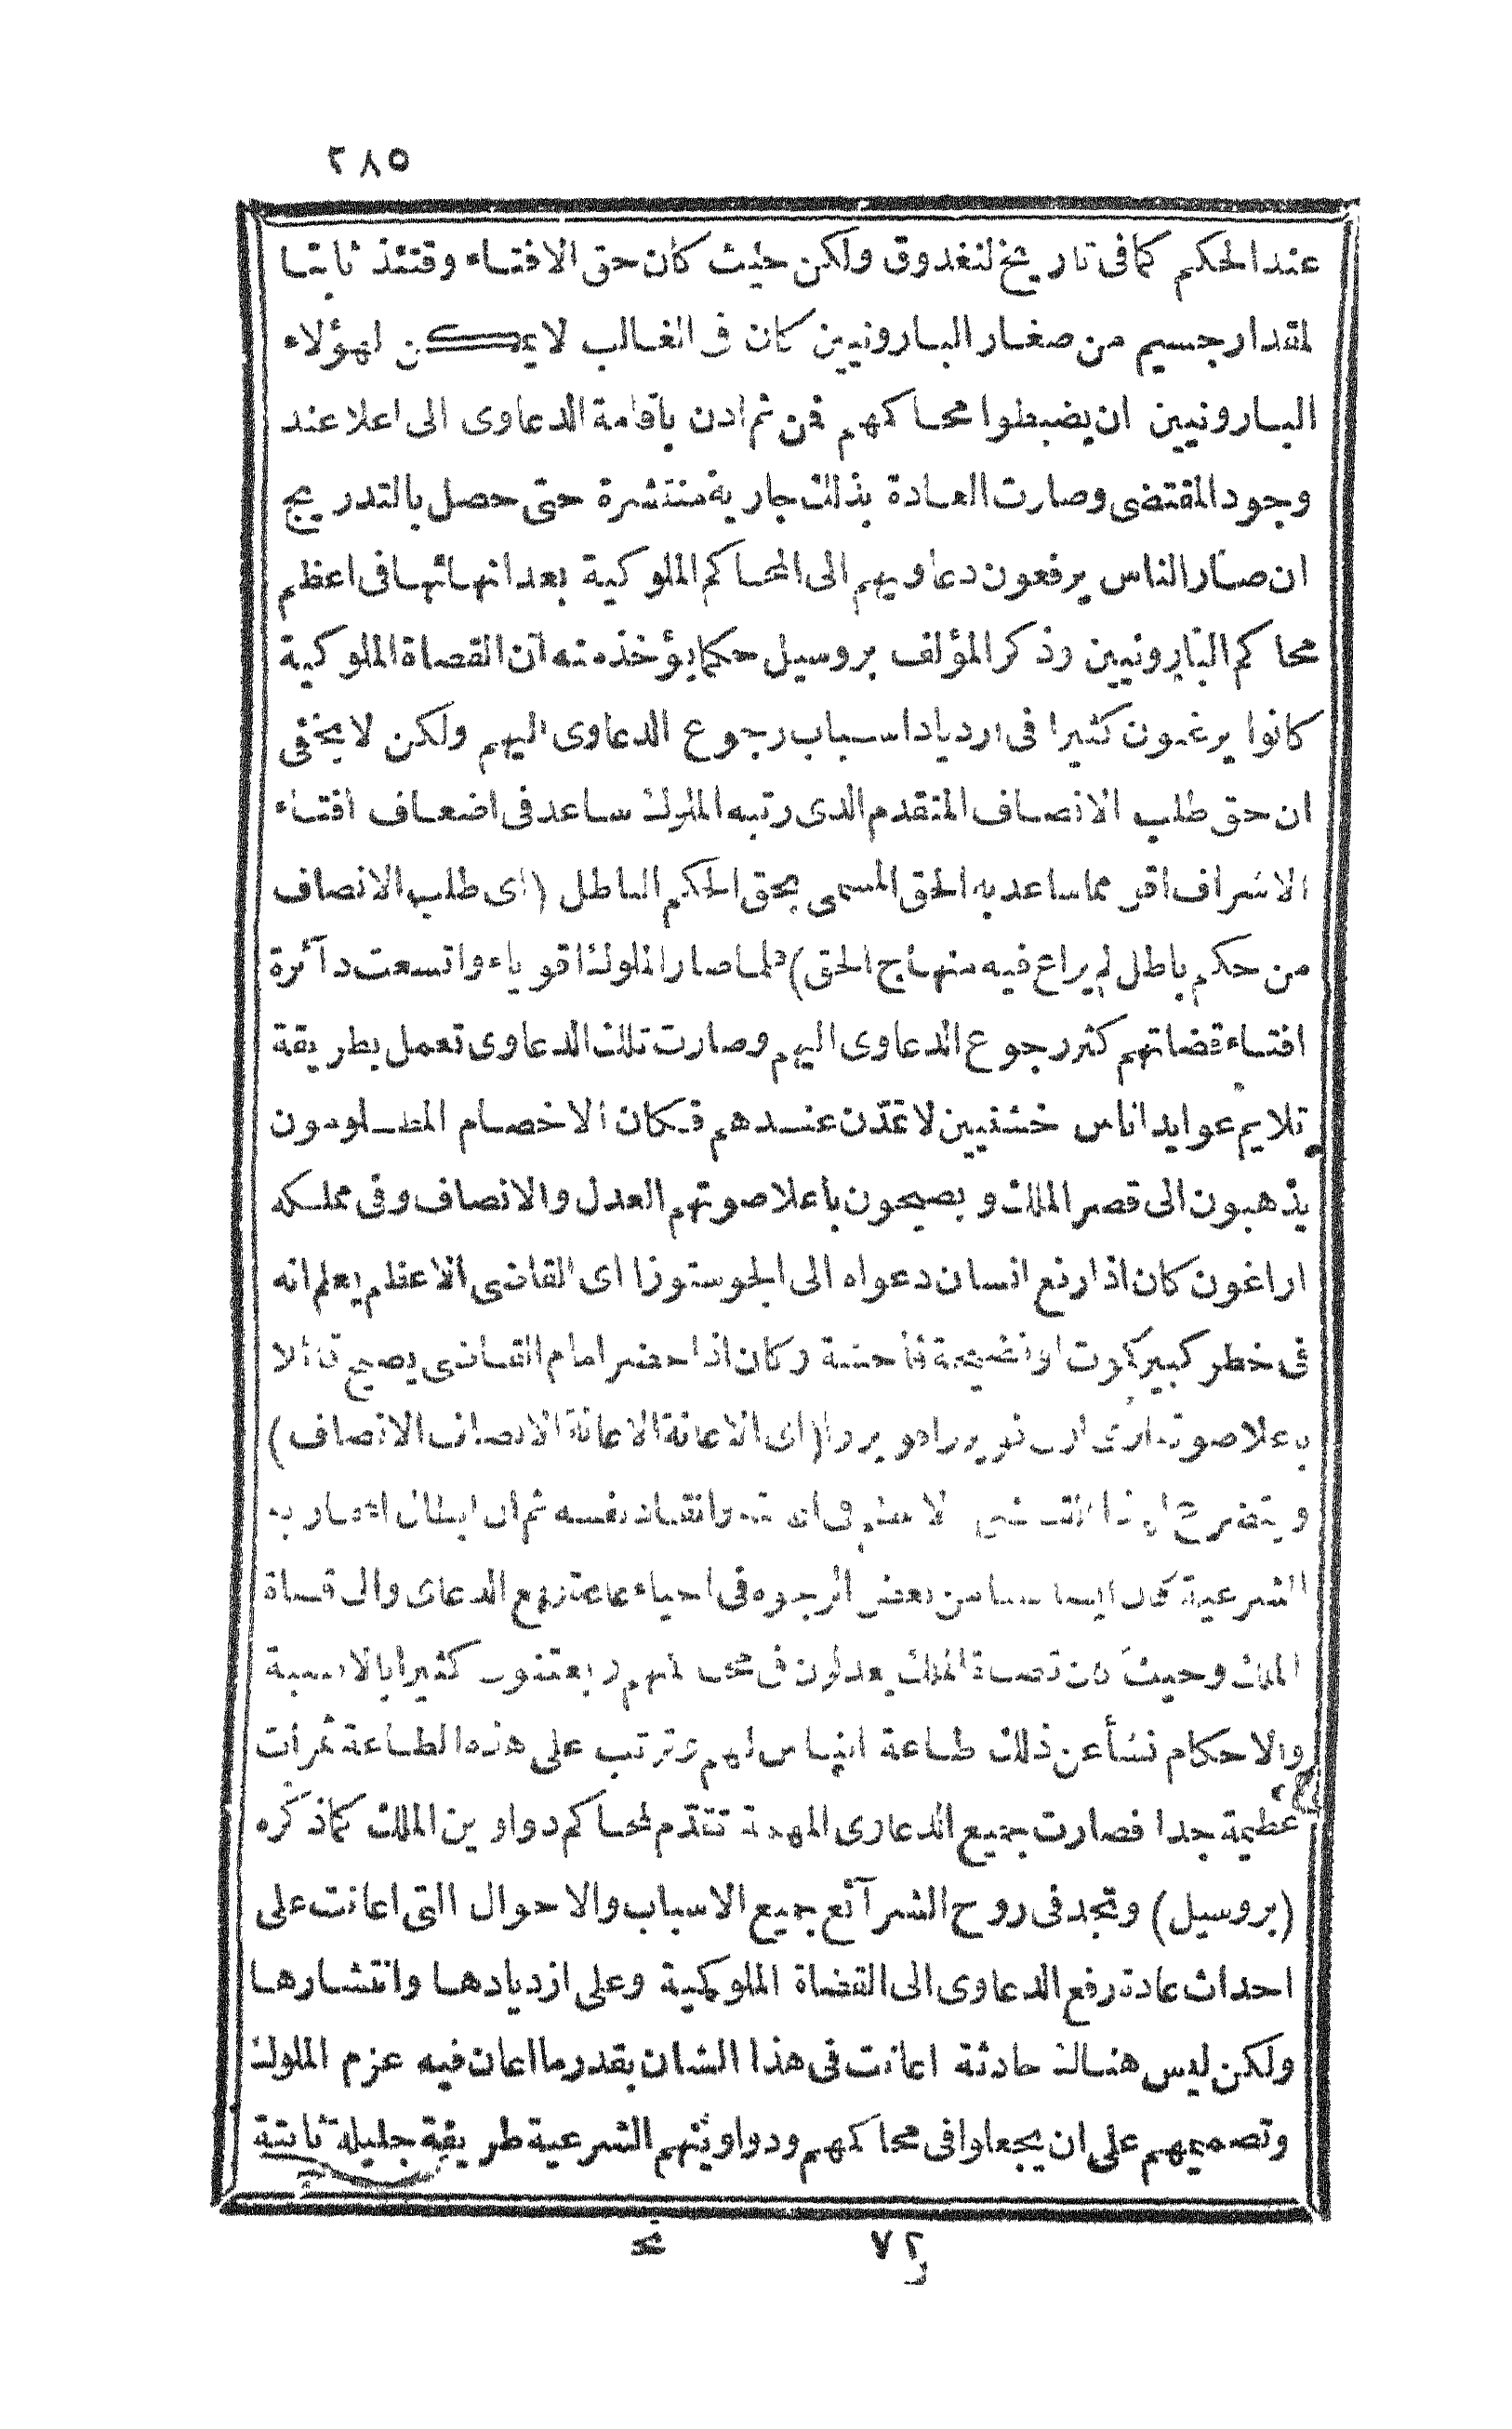 ٢٨٥
عند الحكم كما فى تاريخ لنغدوق ولكن حيث كان حق الافتاء وقتئذ ثابتا
لمقدار جسيم من صغار البارونيين كان فى الغالب لا يمكن لهؤلاء
البارونيين ان يضبطوا محاكمهم فمن ثم اذن باقامة الدعاوى الى اعلا عند
وجود المقتضى وصارت العادة بذلك جارية منتشرة حتى حصل بالتدريج
ان صار الناس يرفعون دعاويهم الى المحاكم الملوكية بعد انهائها فى اعظم
محاكم البارونيين وذكر المؤلف بروسيل حكما يؤخذ منه ان القضاة الملوكية
كانوا يرغبون كثيرا فى ازدياد اسباب رجوع الدعاوى اليهم ولكن لا يخفى
ان حق طلب الانصاف المتقدم الذى رتبه الملوك ساعد فى اضعاف افتاء
الاشراف اقوى مما ساعد به الحق المسمى بحق الحكم الباطل (اى طلب الانصاف
من حكم باطل لم يراع فيه منهاج الحق) فلما صار الملوك اقوياء واتسعت دآئرة
افتاء قضاتهم كثر رجوع الدعاوى اليهم وصارت تلك الدعاوى تعمل بطريقة
تلايم عوايد اناس خشنيين لا تمدّن عندهم فكان الاخصام المظلومون
يذهبون الى قصر الملك ويصيحون باعلا صوتهم العدل والانصاف وفى مملكه
اراغون كان اذا رفع انسان دعواه الى الجوستوزا اى القاضى الاعظم يعلم انه
فى خطر كبير كموت او فضيحة فاحشة وكان اذا حضر امام القاضى يصيح قائلا
باعلا صوته (اى الاعانة الاعانة الانصاف الانصاف)
ويتضرع الاعظم فى انقاذ نفسه ثم ان ابطال
الشرعية كان ايضا من بعض الوجوه فى احياء عادة رفع الدعاوى الى قضاة
الملك وحيث كان قضاة الملك يعدلون فى محاكمهم ويعتنون كثيرا بالاقضية
والاحكام نشأ عن ذلك طاعة الناس لهم وترتب على هذه الطاعة ثمرات
عظيمة جدا فصارت جميع الدعاوى المهمة تتقدّم لمحاكم دواوين الملك كما ذكره
(بروسيل) وتجد فى روح الشرآئع جميع الاسباب والاحوال التى اعانت على
احداث عادة رفع الدعاوى الى القضاة الملوكية وعلى ازديادها وانتشارها
ولكن ليس هنالك حادثة اعانت فى هذا الشان بقدر ما اعان فيه عزم الملوك
وتصميمهم على ان يجعلوا فى محاكمهم ودواوينهم الشرعية طريقة جليلة ثابتة
٧٢ تح